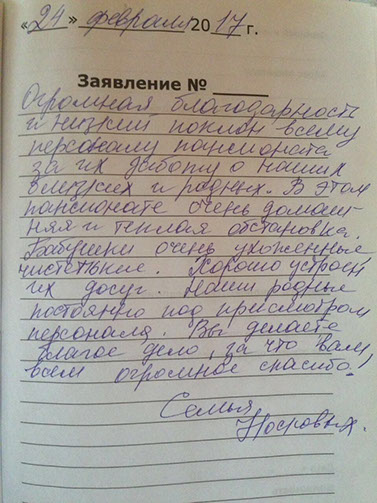 «24» февраля 2017 г.
Заявление №
Огромная благодарность
и низкий поклон всему
персоналу пансионата
за их заботу о наших
близких и родных. В этом
пансионате очень домаш-
няя и теплая обстановка.
Бабушки очень ухоженные
чистенькие. Хорошо устроен
их досуг. Наши родные
постоянно под присмотром
персонала. Вы делаете
благое дело, за что вам
всем огромное спасибо!
Семья
Носровых.